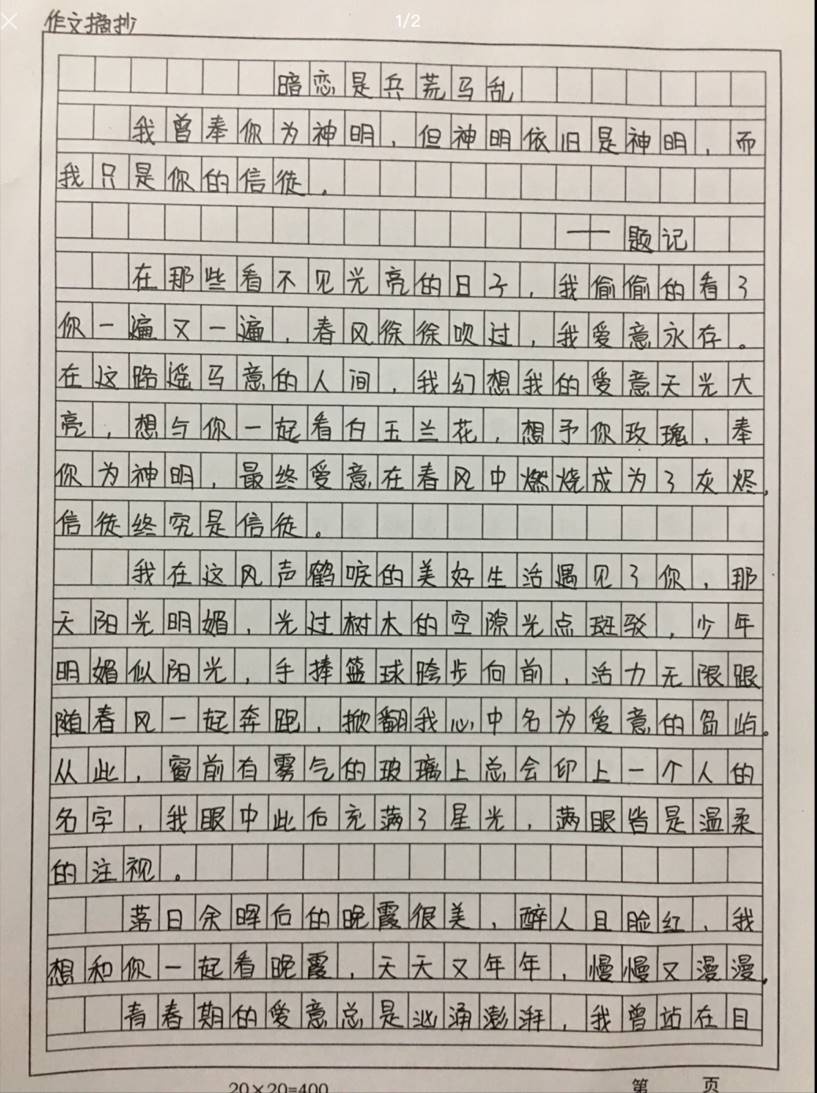 作文摘抄
1/2
暗恋是兵荒马乱
我曾奉你为神明，但神明依旧是神明，而
我只是你的信徒。
——题记
在那些看不见光亮的日子，我偷偷的看了
你一遍又一遍，春风徐徐吹过，我爱意永存。
在这路遥马意的人间，我幻想我的爱意天光大
亮，想与你一起看白玉兰花，想予你玫瑰，奉
你为神明，最终爱意在春风中燃烧成为了灰烬，
信徒终究是信徒。
我在这风声鹤唳的美好生活遇见了你，那
天阳光明媚，光过树木的空隙光点斑驳，少年
明媚似阳光，手捧篮球跨步向前，活力无限跟
随春风一起奔跑，掀翻我心中名为爱意的岛屿。
从此，窗前有雾气的玻璃上总会印上一个人的
名字，我眼中此后充满了星光，满眼皆是温柔
的注视。
落日余晖后的晚霞很美，醉人且脸红，我
想和你一起看晚霞，天天又年年，慢慢又漫漫。
青春期的爱意总是汹涌澎湃，我曾站在目
20×20=400
第 页